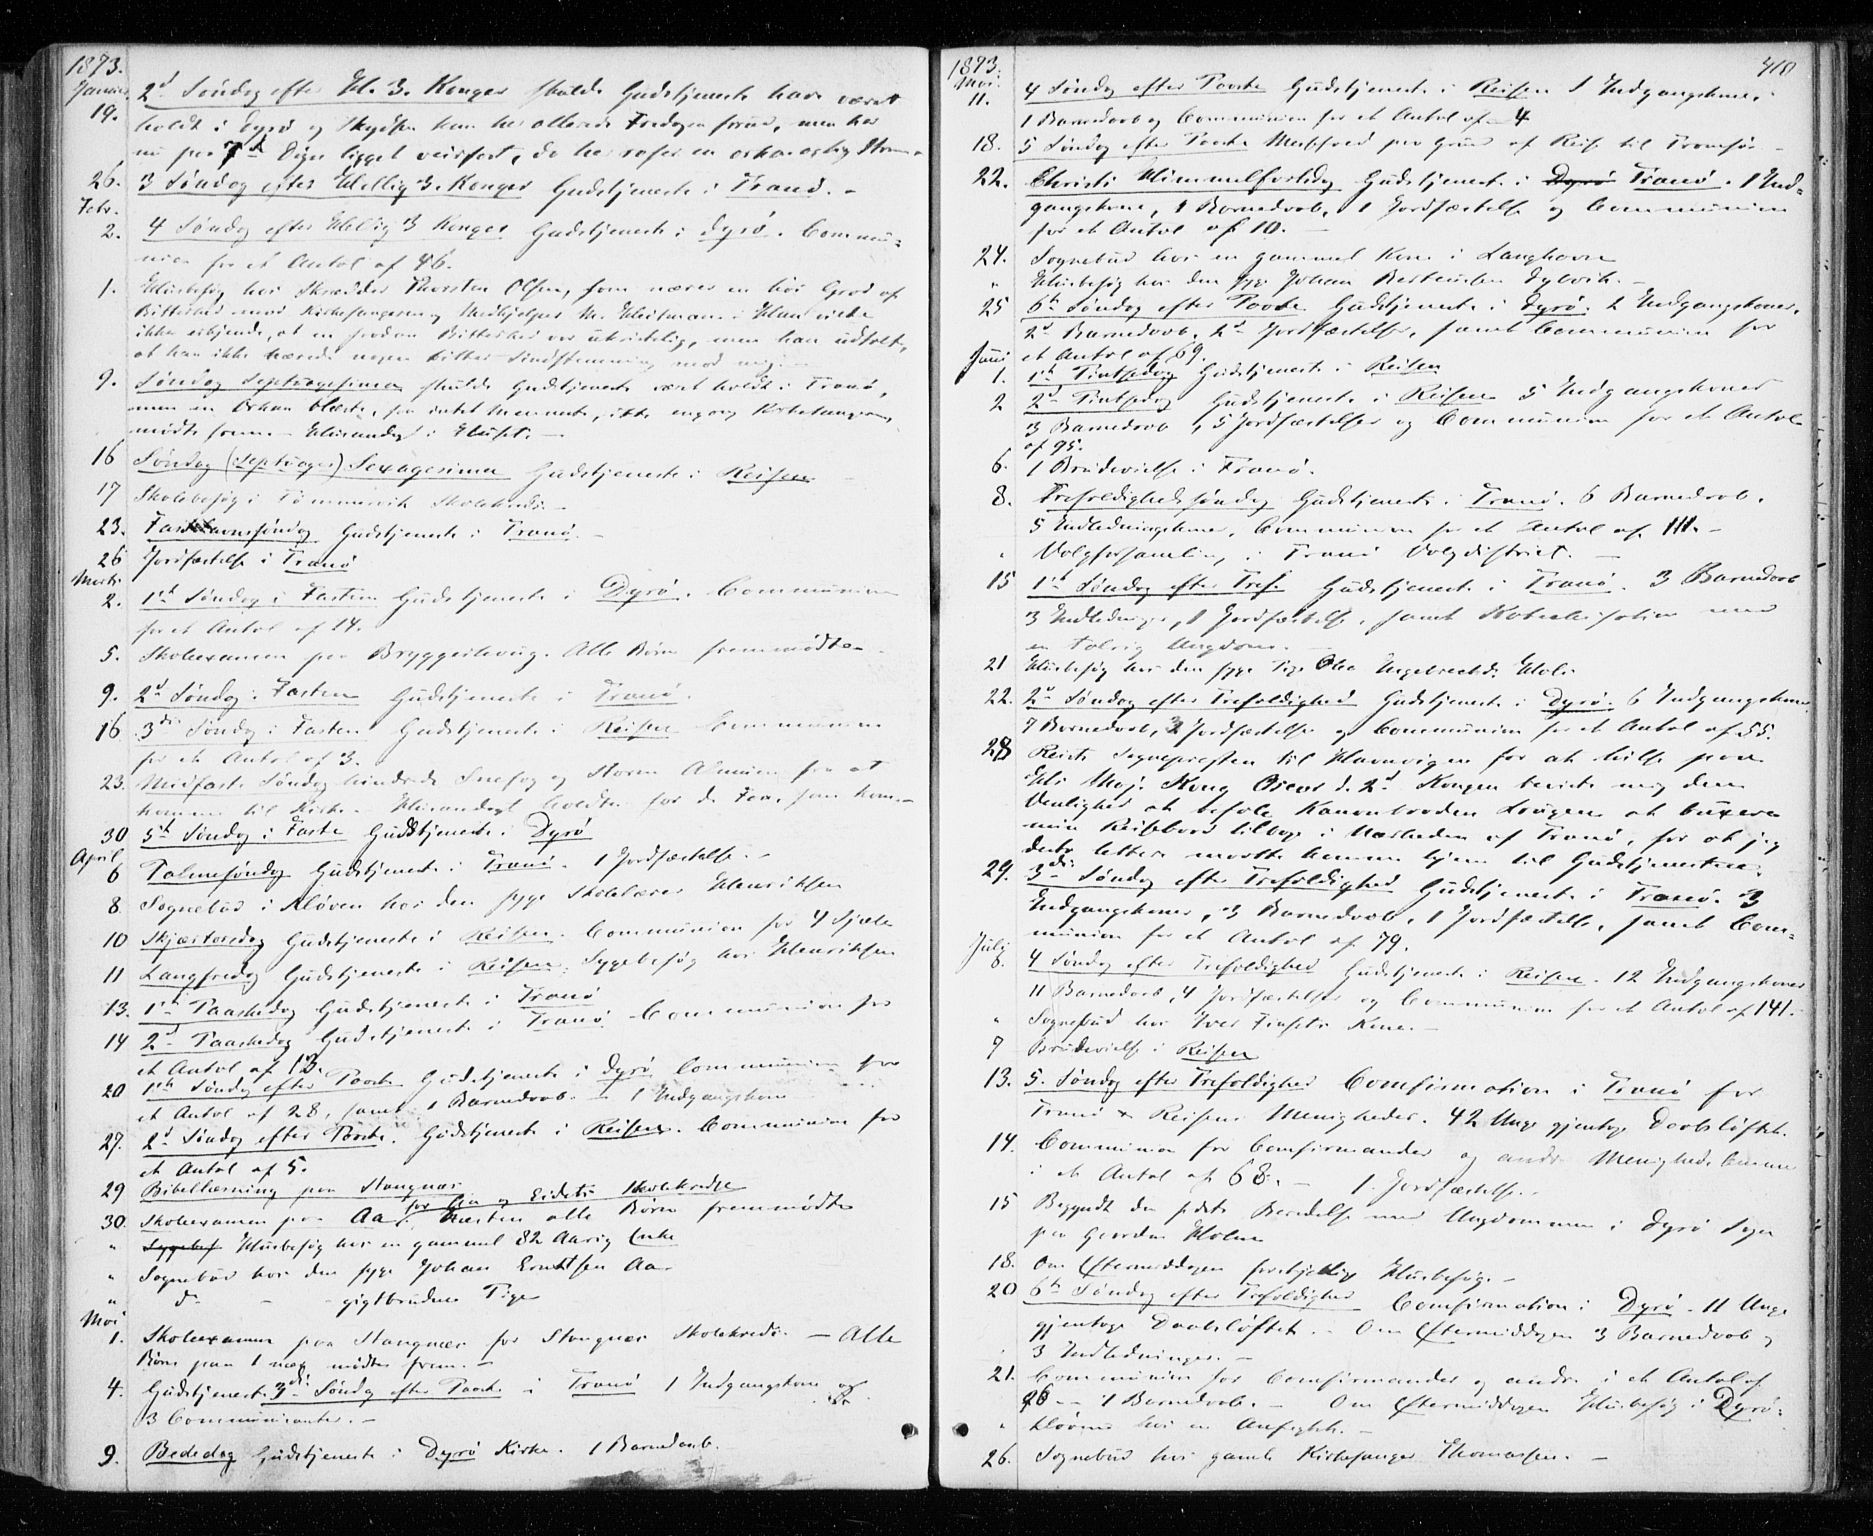 1873.
Januar 2d Søndag efter Hl. 3. Konger skulde Gudstjeneste have været
19. holdt i Dyrø og Skydsen kom her allerede Fredagen forud, men har
nu paa 7de Dagen ligget veirfast, da her raser en orkanartig Storm
26. 3 Søndag efter Hellig 3. Konger Gudstjeneste i Tranø. -
Febr.
2. 4 Søndag efter Hellig 3 Konger Gudstjeneste i Dyrø. Commu-
nion for et Antal af 46.
1. Huusbesøg hos Skrædder Thorsten Olsen, som nærer en høi Grad af
Bitterhed mod Kirkesangeren og Medhjelper M. Heitmann. Han vilde
ikke erkjende, at en saadan Bitterhed var ukristelig, men han udtalte,
at han ikke nærede nogen bitter Sindstemning mod mig. -
9. Søndag Septuagesima skulde Gudstjeneste vært holdt i Tranø,
men en Orkan blæste, saa intet Menneske, ikke engang Kirkesangeren,
mødte frem. - Huusandagt i Huset. -
16 Søndag (Septuages) Sexagesima Gudstjeneste i Reisen
17 Skolebesøg i Tømmervik Skolekreds. -
23. Fastelavnssøndag Gudstjeneste i Tranø. -
26 Jordfæstelse i Tranø
Marts
2. 1ste Søndag i Fasten Gudstjeneste i Dyrø. Communion
for et Antal af 14.
5. Skoleexamen paa Bryggerhaug. Alle Børn fremmødte.
9. 2d Søndag i Fasten Gudstjeneste i Tranø.
16 3die Søndag i Fasten Gudstjeneste i Reisen Communion
for et Antal af 3.
23. Midfaste Søndag hindrede Snefog og Storm Almuen fra at
komme til Kirke. Huusandagt holdtes for de Faa, som kom. -
30 5te Søndag i Faste Gudstjeneste i Dyrø
April
6 Palmesøndag Gudstjeneste i Tranø. 1 Jordfæstelse. -
8. Sognebud i Kløven hos den syge Skolelærer Henriksen
10 Skjærtorsdag Gudstjeneste i Reisen. Communion for 4 Sjæle
11 Langfredag Gudstjeneste i Reisen. Sygebesøg hos Henriksen
13. 1ste Paaskedag Gudstjeneste i Tranø
14 2den Paaskedag Gudstjeneste i Tranø Communion for
et Antal af 13.
20 1ste Søndag efter Paaske Gudstjeneste i Dyrø Communion for
et Antal af 28, samt 1 Barnedaab. - 1 Indgangskone
27. 2d Søndag efter Paaske. Gudstjeneste i Reisen. Communion for
et Antal af 5.
29 Bibellæsning paa Stangnæs
for Aa og Eidets Skolekredse
30. Skoleexamen paa Aa. Næsten alle Børn fremmødte
" Sygebes Huusbesøg hos en gammel 82 Aarig Enke
" Sognebud hos den syge Johan Erntsen Aa
" do - gigtbrudne Pige
Mai
1. Skoleexamen paa Stangnæs for Stangnæs Skolekreds. - Alle
Børn paa 1 nær mødte frem. -
4. Gudstjeneste 3die Søndag efter Paaske i Tranø 1 Indgangskone og
3 Communicanter. -
9. Bededag Gudstjeneste i Dyrø Kirke. 1 Barnedaab.
1873. 410
Mai
11. 4 Søndag efter Paaske Gudstjeneste i Reisen 1 Indgangskone,
1 Barnedaab og Communion for et Antal af 4
18. 5 Søndag efter Paaske Messefald paa Grund af Reise til Tromsø. -
22. Christi Himmelfartsdag Gudstjeneste i Dyrø Tranø. 1 Ind-
gangskone, 1 Barnedaab, 1 Jordfæstelse og Communion
for et Antal af 10. -
24. Sognebud hos en gammel Kone i Langhavn
" Huusbesøg hos den syge Johan Bertheusen Sylvik. -
25 6te Søndag efter Paaske Gudstjeneste i Dyrø. 2 Indgangskoner,
2d Barnedaab, 2d Jordfæstelser, samt Communion for
et Antal af 69.
Juni
1. 1ste Pintsedag Gudstjeneste i Reisen
2 2den Pintsedag Gudstjeneste i Reisen 5 Indgangskoner
3 Barnedaab, 5 Jordfæstelser og Communion for et Antal
af 95.
6. 1 Brudevielse i Tranø.
8. Trefoldighedssøndag Gudstjeneste i Tranø. 6 Barnedaab.
5 Indledningskoner, Communion for et Antal af 111. -
" Valgforsamling i Tranø Valgdistrict. -
15 1ste Søndag efter Tref. Gudstjeneste i Tranø. 3 Barnedaab
3 Indledninger, 1 Jordfæstelse, samt Katechisation med
en talrig Ungdom. -
21 Huusbesøg hos den syge Pige Oba Ingebrechts. Hol.
22. 2d Søndag efter Trefoldighed Gudstjeneste i Dyrø. 6 Indgangskoner
7 Barnedaab, 3 Jordfæstelser og Communion for et Antal af 55.
28 Reiste Sognepresten til Havnvigen for at hilse paa
Hs Maj. Kong Oscar d. 2d Kongen beviste mig den
Venlighed at befale Kanonbaaden Laugen at buxere
min Reisebaad tilbage i Nærheden af Tranø, for at jeg
desto lettere maatte komme hjem til Gudstjenesten.
29. 3die Søndag efter Trefoldighed Gudstjeneste i Tranø. 3
Indgangskoner, 3 Barnedaab, 1 Jordfæstelse, samt Com-
munion for et Antal af 79.
July
6. 4 Søndag efter Trefoldighed Gudstjeneste i Reisen. 12 Indgangskoner
11 Barnedaab, 4 Jordfæstelser og Communion for et Antal af 141.
" Sognebud hos Iver Finsets Kone. -
7 Brudevielse i Reisen
13. 5. Søndag efter Trefoldighed Comfirmation i Tranø for
Tranø & Reisens Menigheder. 42 Unge gjentoge Daabsløftet.
14. Communion for Comfirmander og andre Menighedslemmer
i et Antal af 68. - 1 Jordfæstelse.
15 Begyndt den sidste Beredelse med Ungdommen i Dyrø Sogn
paa Gaarden Holm
18. Om Eftermiddagen forskjellige Huusbesøg. -
20 6te Søndag efter Trefoldighed Comfirmation i Dyrø. 11 Unge
gjentoge Daabsløftet. - Om Eftermiddagen 3 Barnedaab og
3 Indledninger. -
21. Communion for Comfirmander og andre i et Antal af
26 - 1 Barnedaab. - Om Eftermiddagen Huusbesøg i Dyrø-
" kløven hos en Anfægtet. -
26. Sognebud hos gamle Kirkesanger Thomassen. -